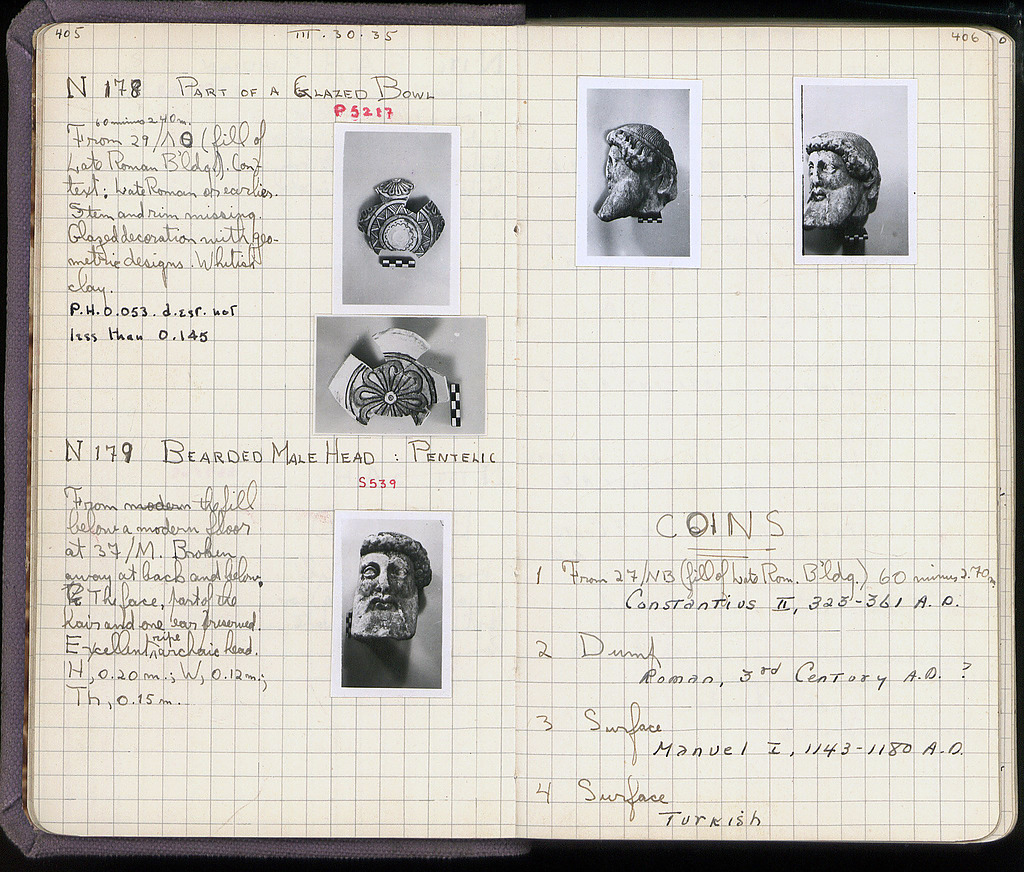 405
III.30.35
N 178 PART OF A GLAZED BOWL
P 5217
60 minus 2.40 m.
From 29/ΛΘ (fill of
Late Roman B'ldg). Con-
text: Late Roman or earlier.
Stem and rim missing.
Glazed decoration with geo-
metric designs. Whitish
clay.
P.H. 0.053. d. est. not
less than 0.145
N 179 BEARDED MALE HEAD : PENTELIC
S539
From modern the fill
below a modern floor
at 37/M. Broken
away at back and below.
The face, part of the
hair and one ear preserved.
Excellent ripe archaic head.
H, 0.20 m.; W, 0.12 m.;
Th, 0.15 m.
406
COINS
1 From 27/NB (fill of Late Rom. B'ldg.) 60 minus 2.70 m.
Constantius II, 323-361 A.D.
2 Dump
Roman, 3rd Century A.D. ?
3 Surface
Manuel I, 1143-1180 A.D.
4 Surface
Turkish